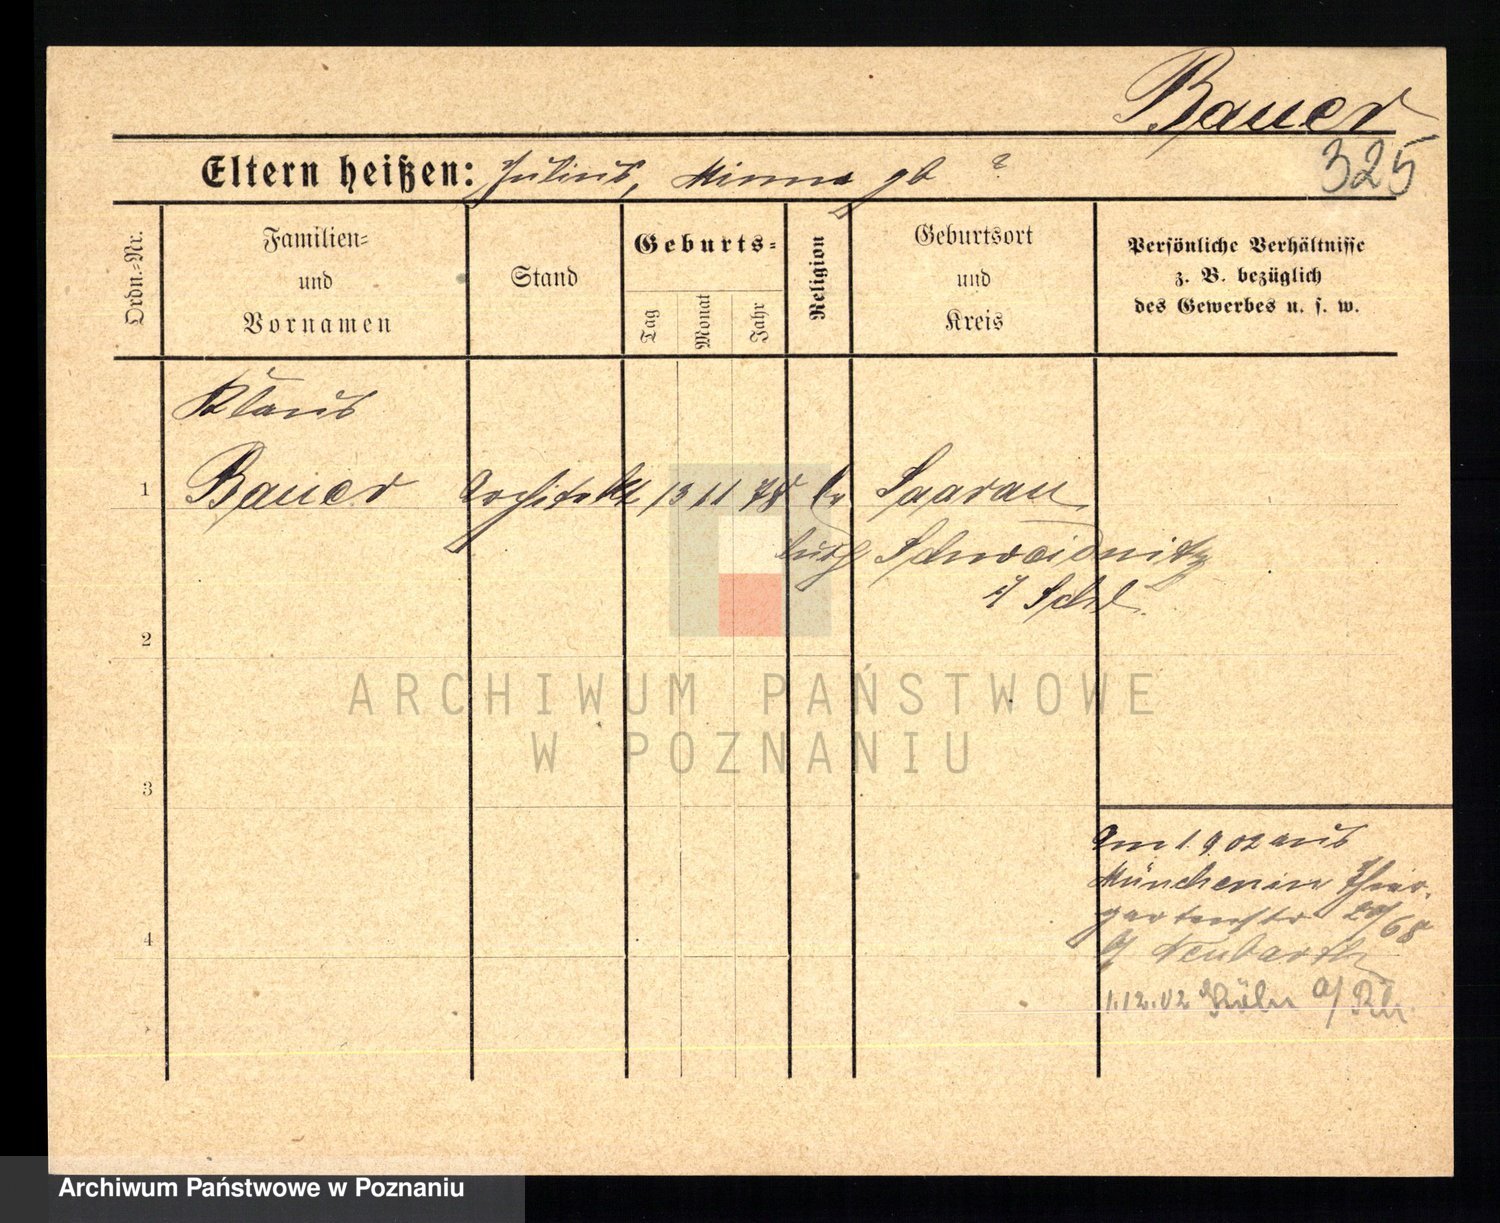 Bauer
325
Eltern heißen: Julius, Minna gb ?
Ordn.-Nr.
Familien-
und
Vornamen
Stand
Geburts-
Tag
Monat
Jahr
Religion
Geburtsort
und
Kreis
Persönliche Verhältnisse
z. B. bezüglich
des Gewerbes u. s. w.
Klaus
1 Bauer Architekt 13 11 78 Saarau
Schweidnitz
i/ Schl.
2
ARCHIWUM PAŃSTWOWE
W POZNANIU
3
Am 1 9 02 aus
München in Thier-
gartenstr
4
Neubarth
1.12.02 Köln a/ Rh.
Archiwum Państwowe w Poznaniu